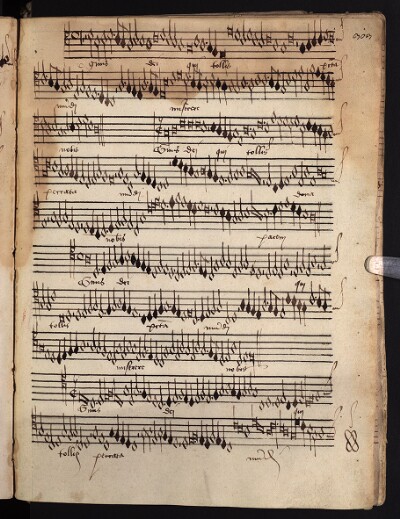 Gnus dei qui tollis pcta
mudi miserere
nobis Gnus dei qui tollis
peccata mudi dona
nobis pacem
Gnus dei
qui
tollis pcta mudi
miserere nobis
Gnus dei qui
tollis peccata mudi